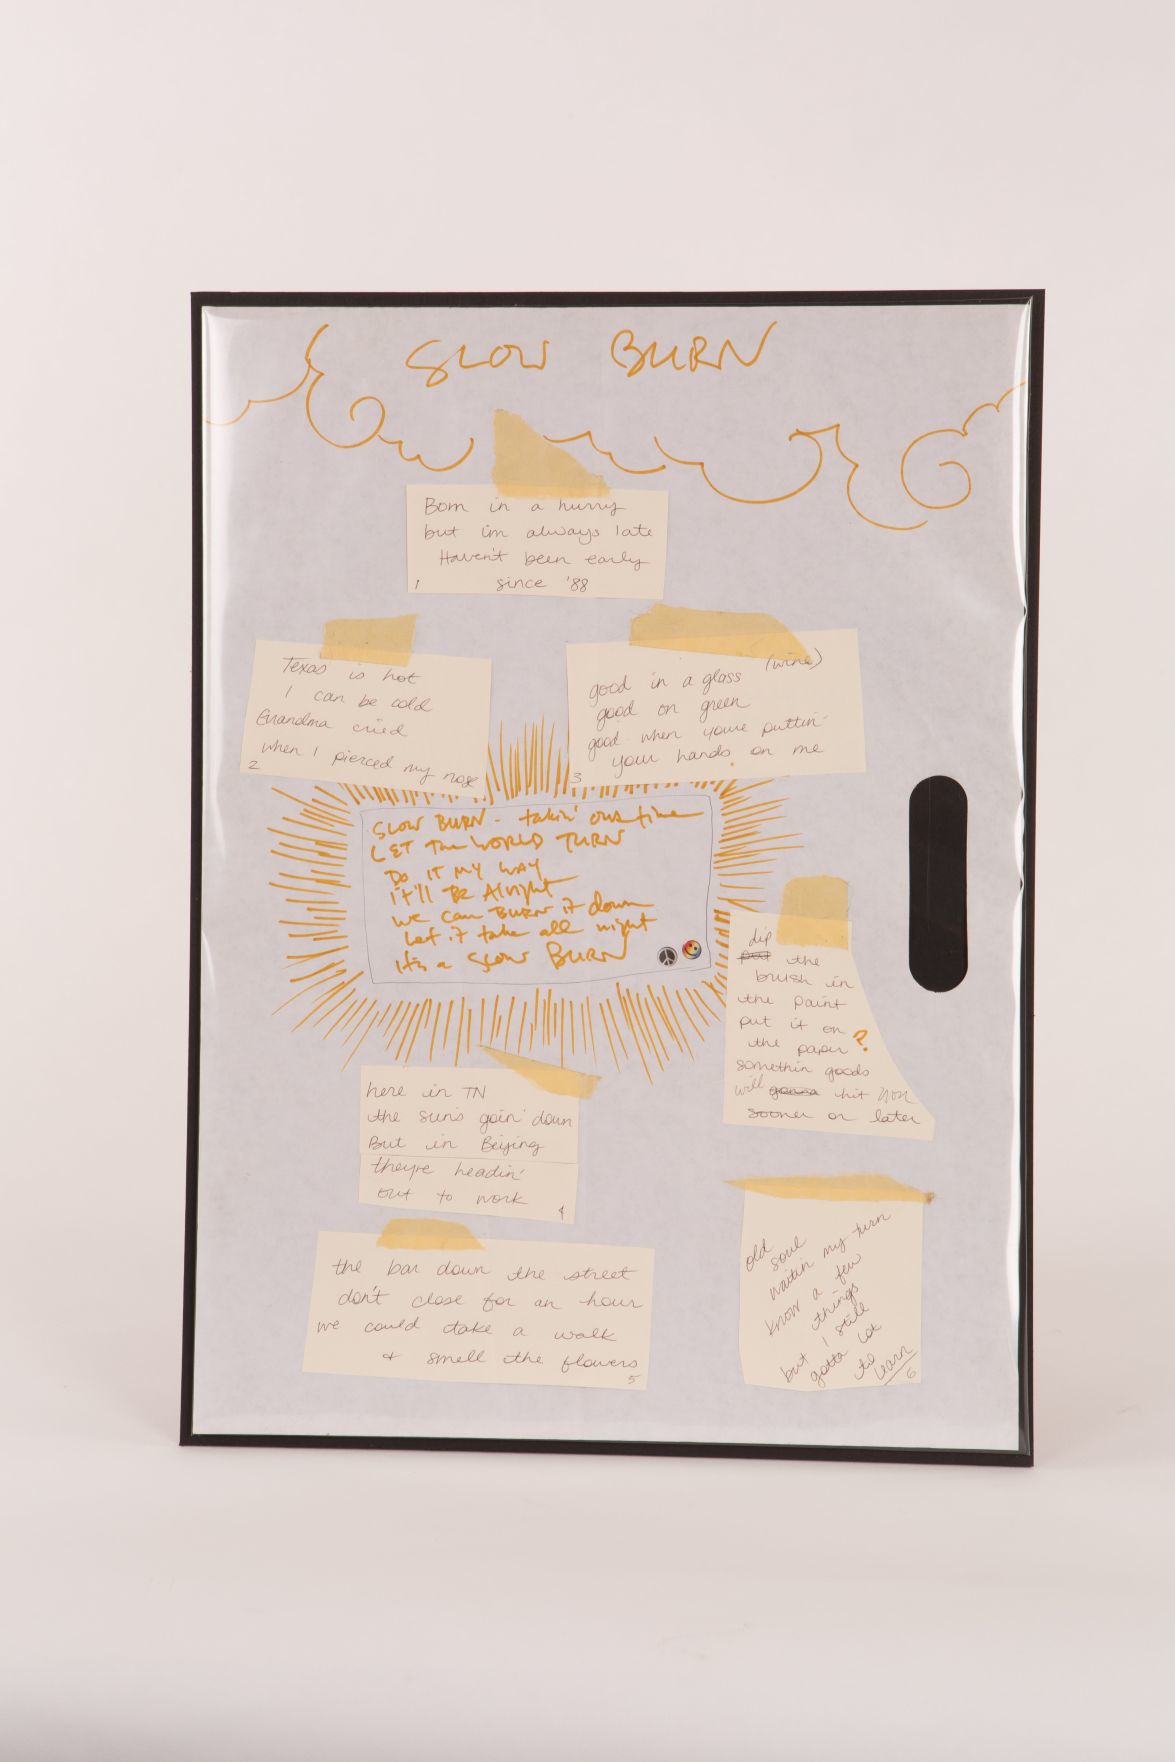 SLOW BURN
Born in a hurry
but im always late
Haven't been early
since '88
1
Texas is hot
I can be cold
Grandma cried
when I pierced my nose
2
(wine)
good in a glass
good on green
good when you're puttin'
your hands on me
3
SLOW BURN - takin' our time
LET The WORLD TURN
Do IT MY WAY
it'll Be Alright
we can Burn it down
Let it take all night
it's a SLOW BURN
dip
put the
brush in
the paint
put it on
the paper ?
somethin goods
will gonna hit you
sooner or later
here in TN
the sun's goin' down
But in Beijing
they're headin'
out to work
4
the bar down the street
don't close for an hour
we could take a walk
& smell the flowers
5
old
soul
waitin my turn
know a few
things
but I still
gotta lot
to
learn
6